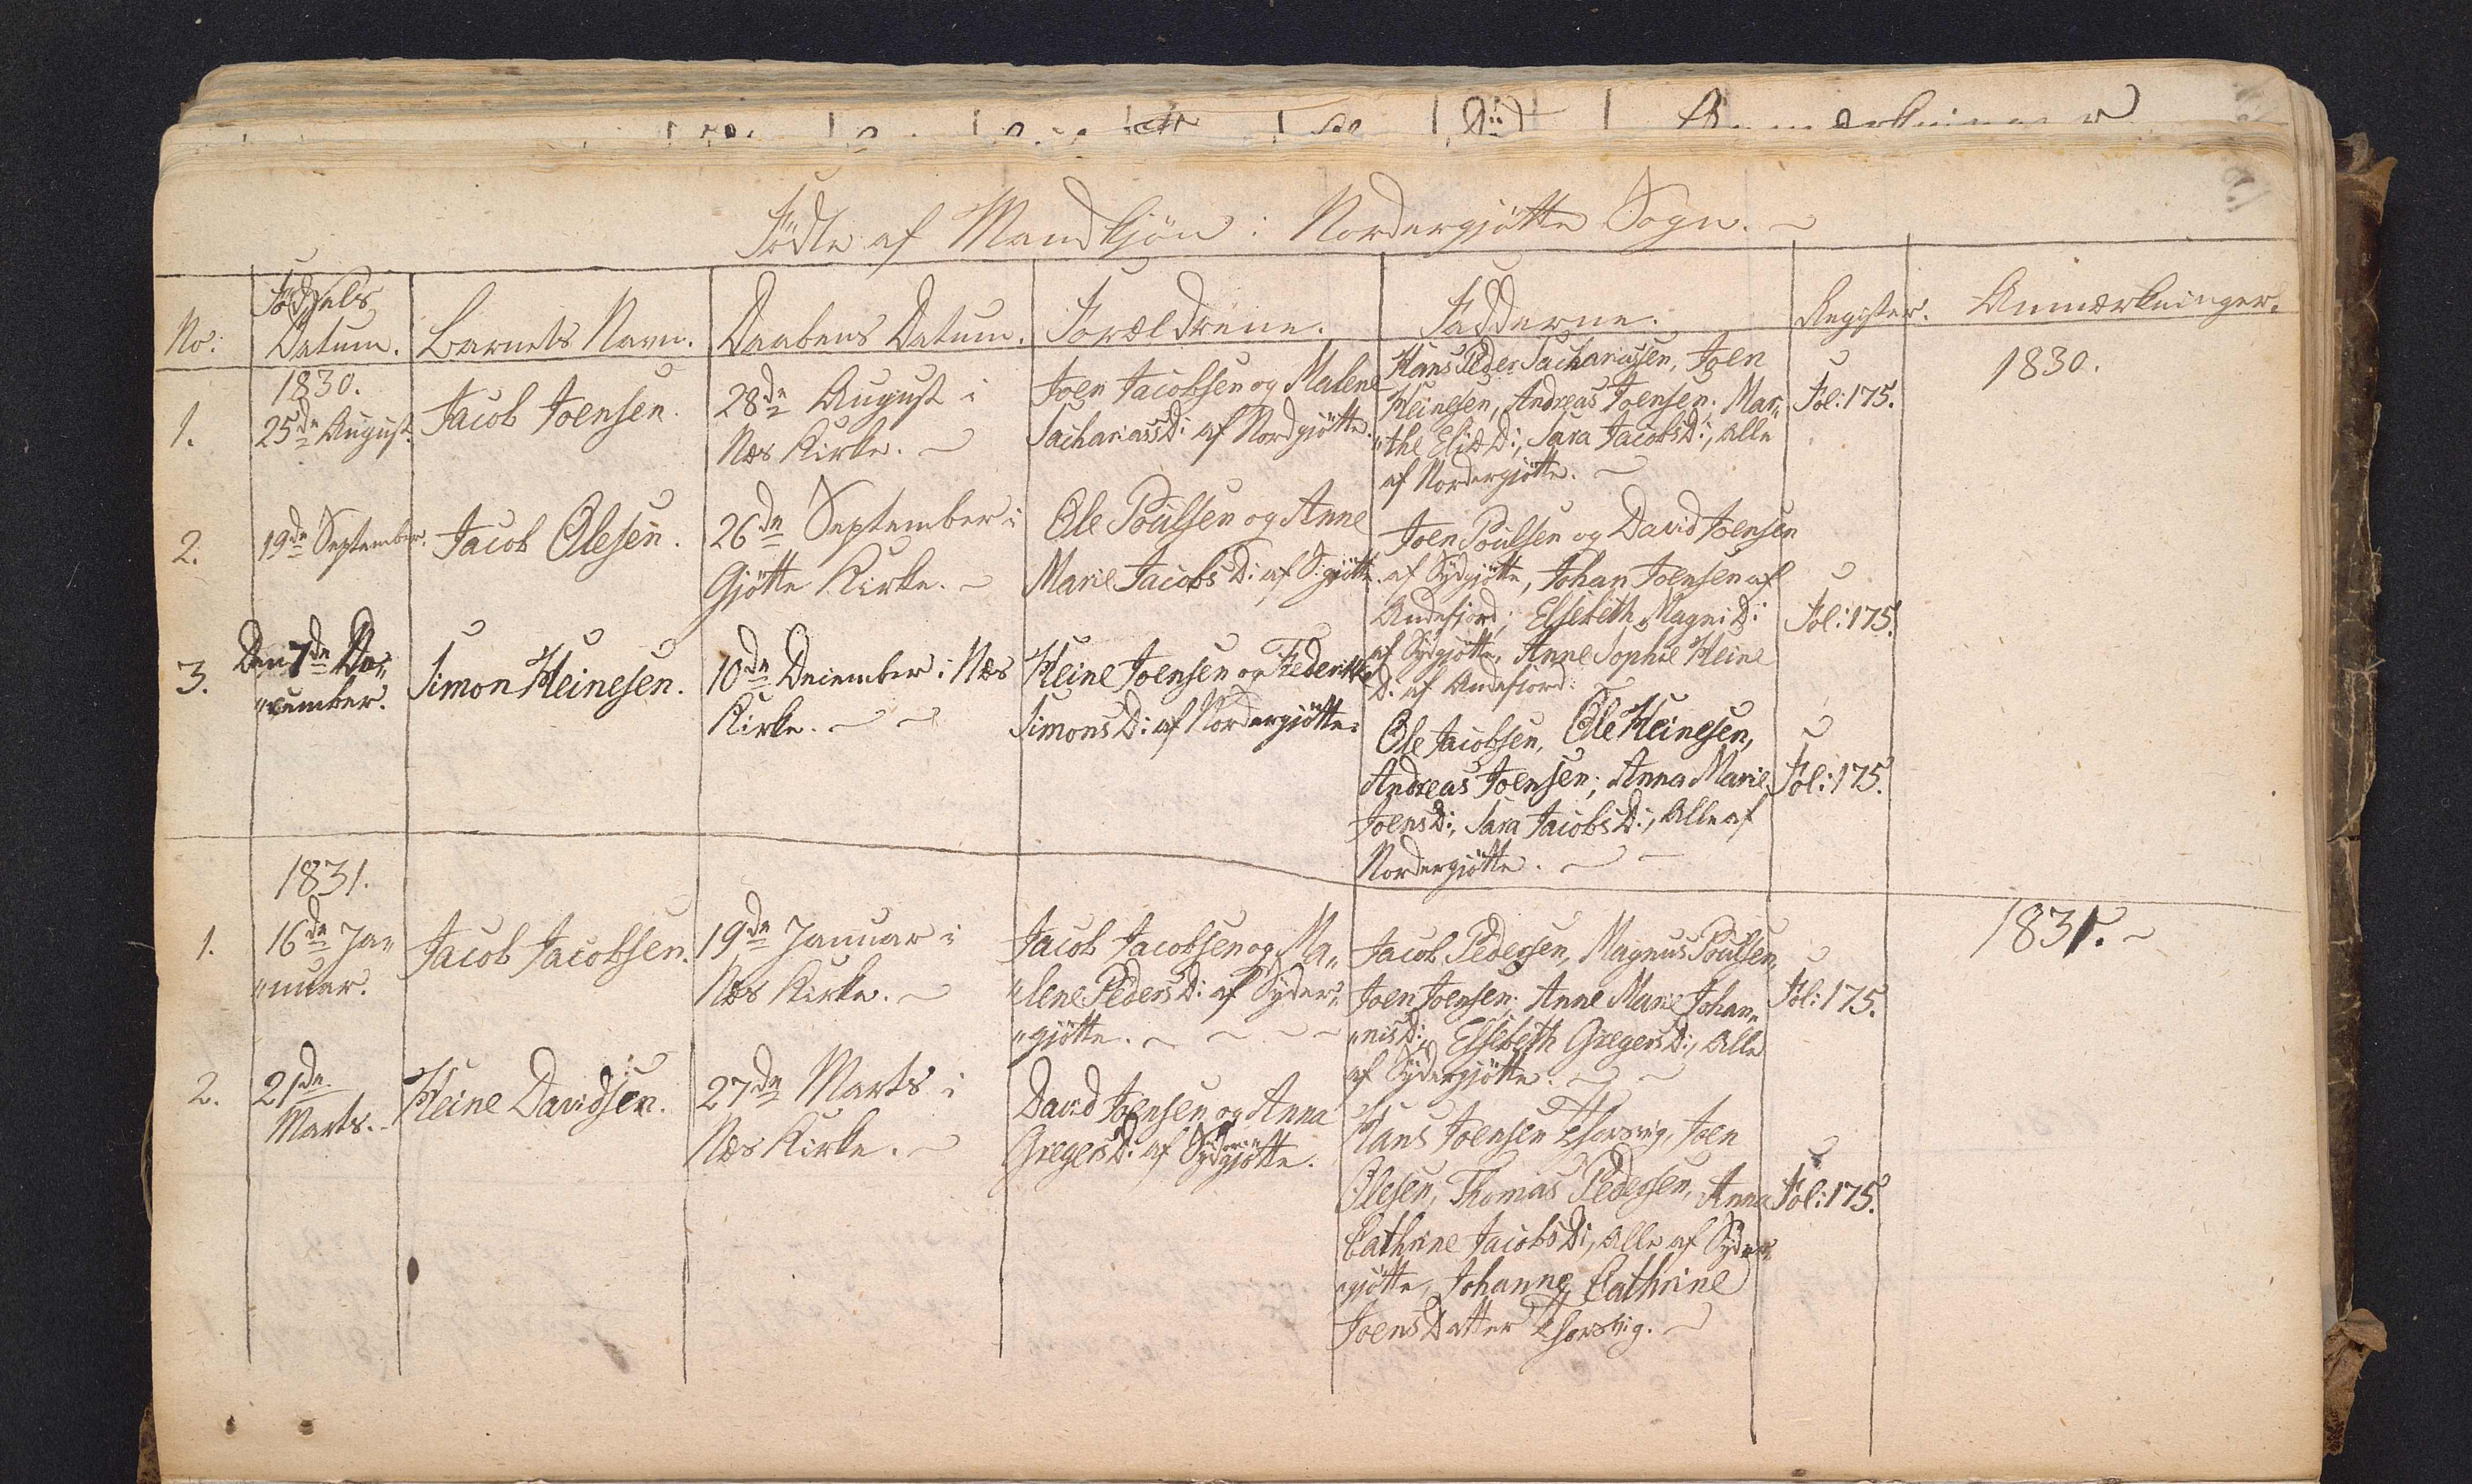 Anmærkninger
Födte af Mandkjön i Nordergjötte Sogn.
No: Födsels Datum. Barnets Navn. Daabens Datum. Forældrene. Fadderne. Register. Anmærkninger.
1830.
1830.
1. 25de August. Jacob Joensen. 28de August i
Næs Kirke.
Joen Jacobsen og Malene
SachariasD: af Nordgjötte.
Hans Peder Sachariassen, Joen
Heinesen, Andreas Joensen; Mar„
„the EliæD:, Sara JacobsD:, alle
af Nordergjötte.
Fol: 175.
2. 19de September. Jacob Olesen. 26de September i
Gjötte Kirke.
Ole Poulsen og Anne
Marie JacobsD: af S:gjötte.
Joen Poulsen og David Joensen
af Sydgjötte, Johan Joensen af
Andefjord; Elsebeth MagniD:
af Sydgjötte, Anne Sophie Heine
D: af Andefjord.
Fol: 175.
3. Den 7de De„
„cember.
Simon Heinesen. 10de December i Næs
Kirke.
Heine Joensen og Federikke
SimonsD: af Nordergjötte.
Ole Jacobsen, Ole Heinesen,
Andreas Joensen; Anna Marie
JoensD:, Sara JacobsD:, alle af
Nordergjötte.
Fol: 175.
1831.
1831.
1. 16de Ja„
„nuar.
Jacob Jacobsen. 19de Januar i
Næs Kirke.
Jacob Jacobsen og Ma„
„lene PedersD: af Syder„
„gjötte.
Jacob Pedersen, Magnus Poulsen,
Joen Joensen; Anne Marie Johan„
„nisD:, Elsebeth GregersD:, alle
af Sydergjötte.
Fol: 175.
2. 21de
Marts.
Heine Davidsen. 27de Marts i
Næs Kirke.
David Joensen og Anna
GregersD: af Sydgjötte.
Hans Joensen Thorsvig, Joen
Olesen, Thomas Pedersen, Anna
Cathrine JacobsD:, alle af Syder„
„gjötte, Johanne Cathrine
JoensDatter Thorsvig.
Fol: 175.